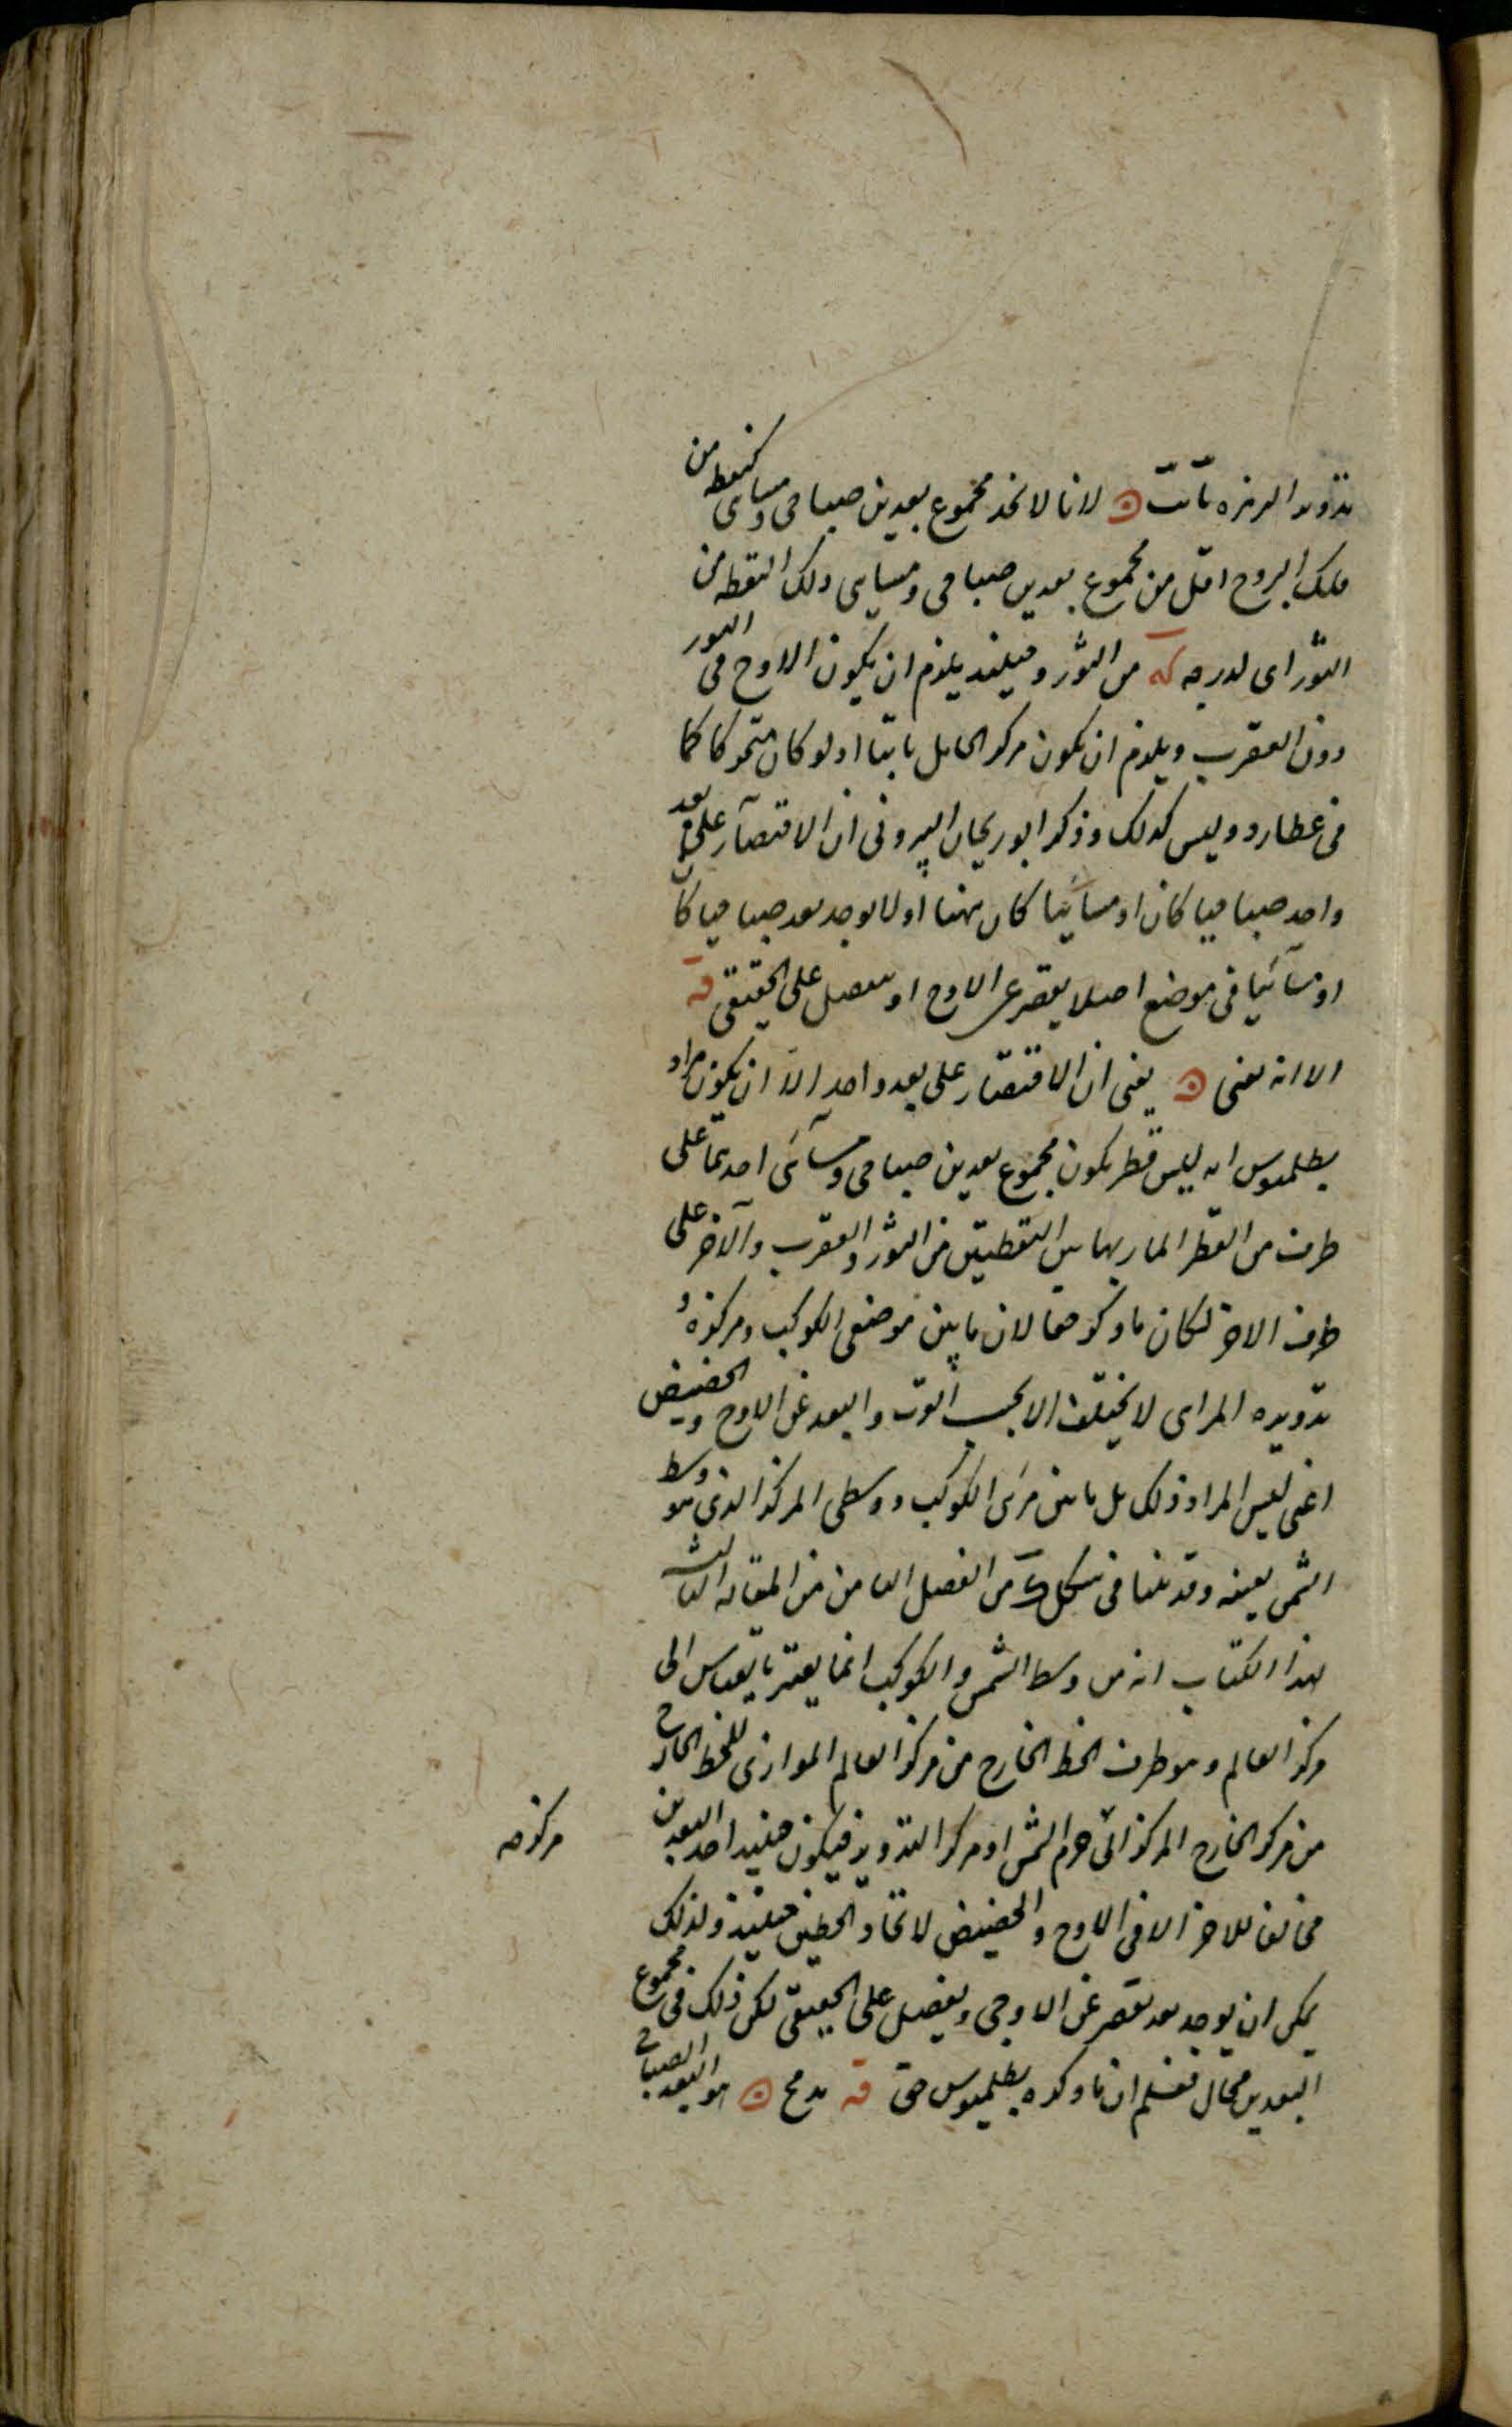 تدوير الزهرة ثابت ۞ لانا لا نجد مجموع بعدين صباحى ومسائى كنقطه من
فلك البروج اقل من مجموع بعدين صباحى ومسائى ولك النقطه من
الثور اى لدرجه كه من الثور وحينئذ يلزم ان يكون الاوج فى الثور
دون العقرب ويلزم ان يكون مركز الحامل ثابتا اذ لو كان متحركا كما
فى عطارد وليس كذلك وذكر ابو ريحان البيرونى ان الاقتصار على بعد
واحد صباحيا كان او مسائيا كان ههنا اولا يوجد بعد صباحيا كا
او مسائيا فى موضع اصلا يقصر عن الاوج او يفضل على الحقيقى قه
الا انه يعنى ۞ يعنى ان الاقتصار على بعد واحد الا ان يكون مراد
بطلميوس انه ليس قطر يكون مجموع بعدين صباحى ومسائى احدهما على
طرف من القطر المار بهاتين النقطتين من الثور والعقرب والاخر على
طرف الاخر لكان ما ذكر حقا لان ما بين موضعى الكوكب ومركزه و
تدويره المرائى لا يختلف الا بحسب القرب والبعد عن الاوج والحضيض
اعنى ليس المراد ذلك بل ما بين مرئى الكوكب ووسطى المركز الذى هو وسط
الشمس بعينه وقد بينا فى شكل ى من الفصل الثامن من المقاله الثالثه
لهذا الكتاب انه من وسط الشمس والكوكب انما يعتبر بالقياس الى
مركز العالم وهو طرف الخط الخارج من مركز العالم الموازى للخط الخارج
من مركز الخارج المركز الى جرم الشمس او مركز التدوير فيكون حينئذ احد البعدين
مركز صه
مخالف للاخر الا فى الاوج والحضيض لاتحاد الخطين حينئذ ولذلك
يمكن ان يوجد بعد يقصر عن الاوجى ويفضل على الحقيقى لكن ذلك فى مجموع
البعدين محال فنعلم ان ما ذكره بطلميوس حق قه مد مح ۞ هو البعد الصباحى